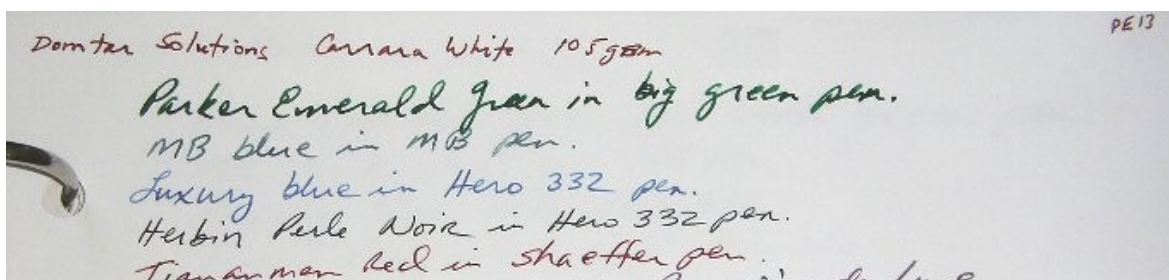 Domtar Solutions Carrara White 105 gsm
PE13
Parker Emerald Green in big green pen.
MB blue in MB pen.
Luxury blue in Hero 332 pen.
Herbin Perle Noir in Hero 332 pen.
Tiananmen Red in shaeffer pen.